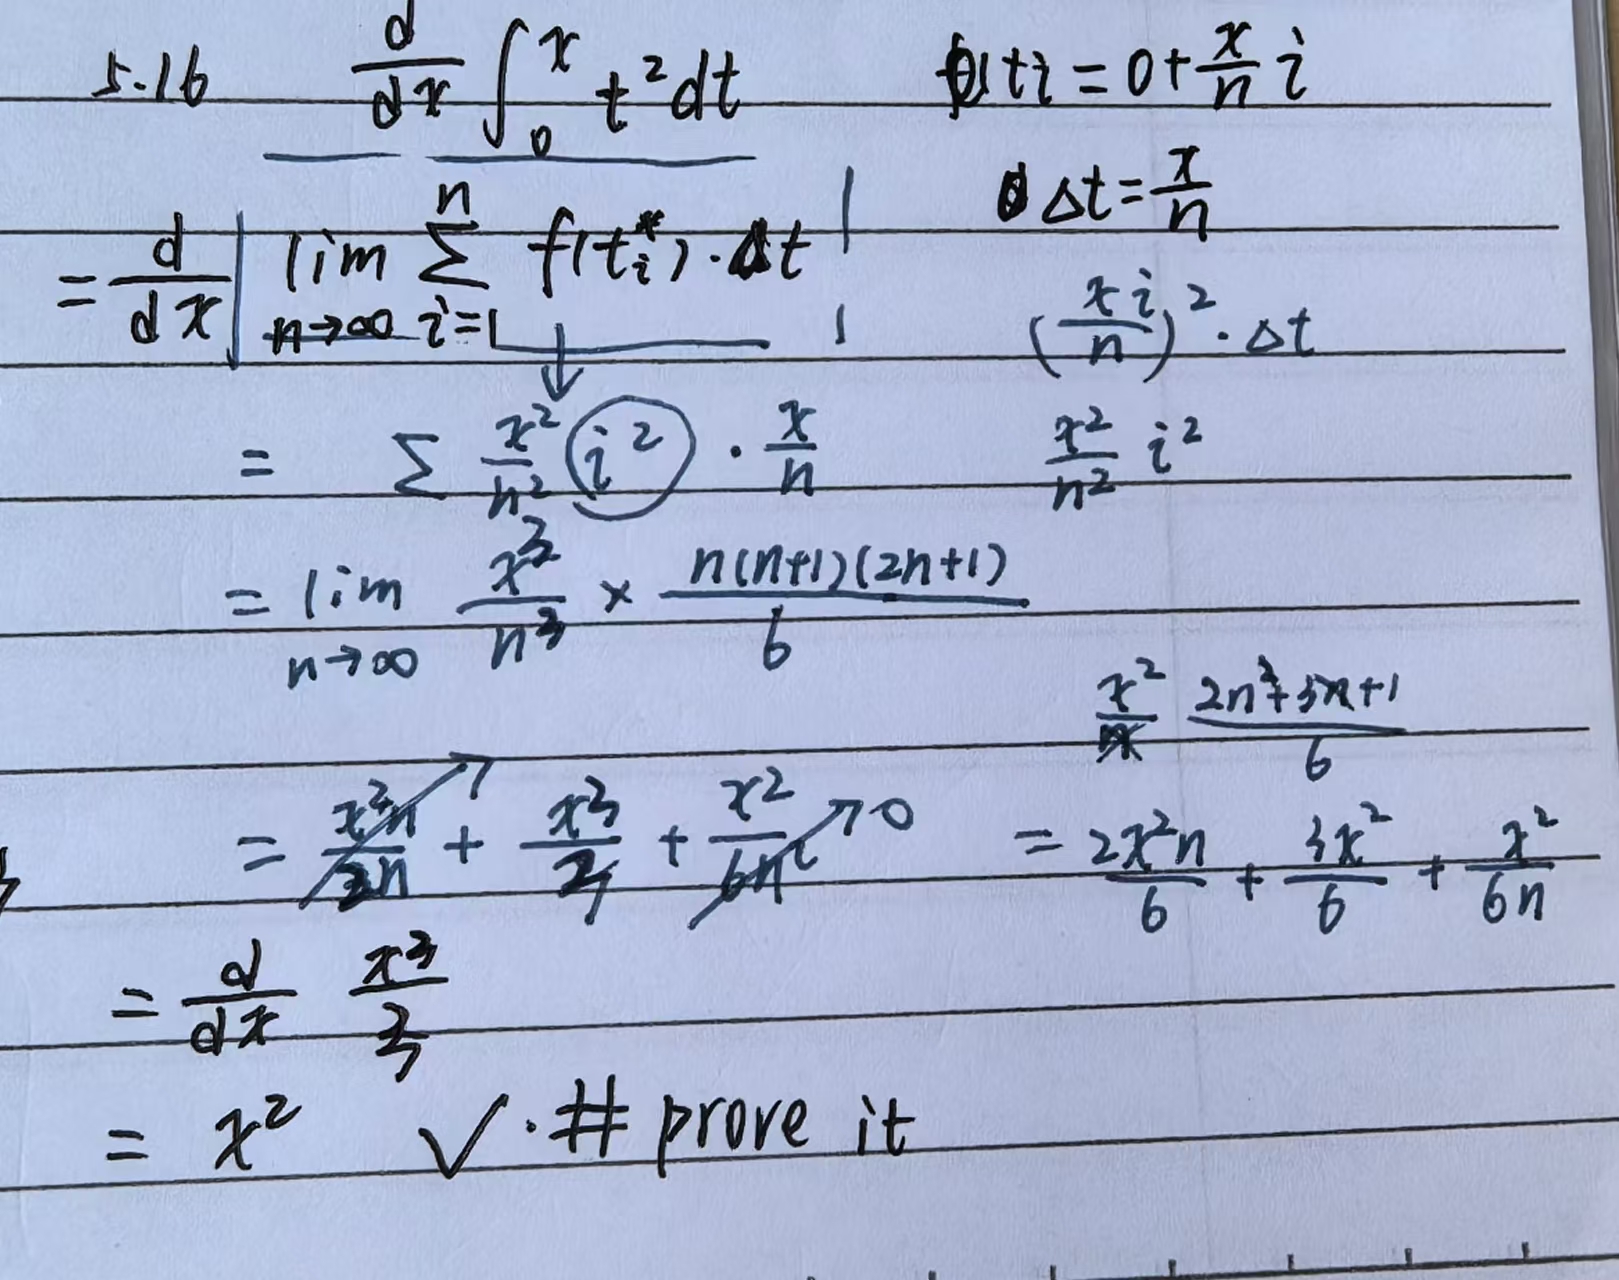 5.16 d/dx ∫₀ˣ t² dt ti = 0 + x/n i
Δt = x/n
= d/dx | lim n→∞ Σ i=1 n f(tᵢ*) · Δt |
(xi/n)² · Δt
= Σ x²/n² i² · x/n x²/n² i²
= lim n→∞ x³/n³ × n(n+1)(2n+1)/6
x² 2n²+3n+1/6
= + + x²/6n → 0 = 2x²n/6 + 3x²/6 + x²/6n
= d/dx x³/3
= x² ✓ · # prove it